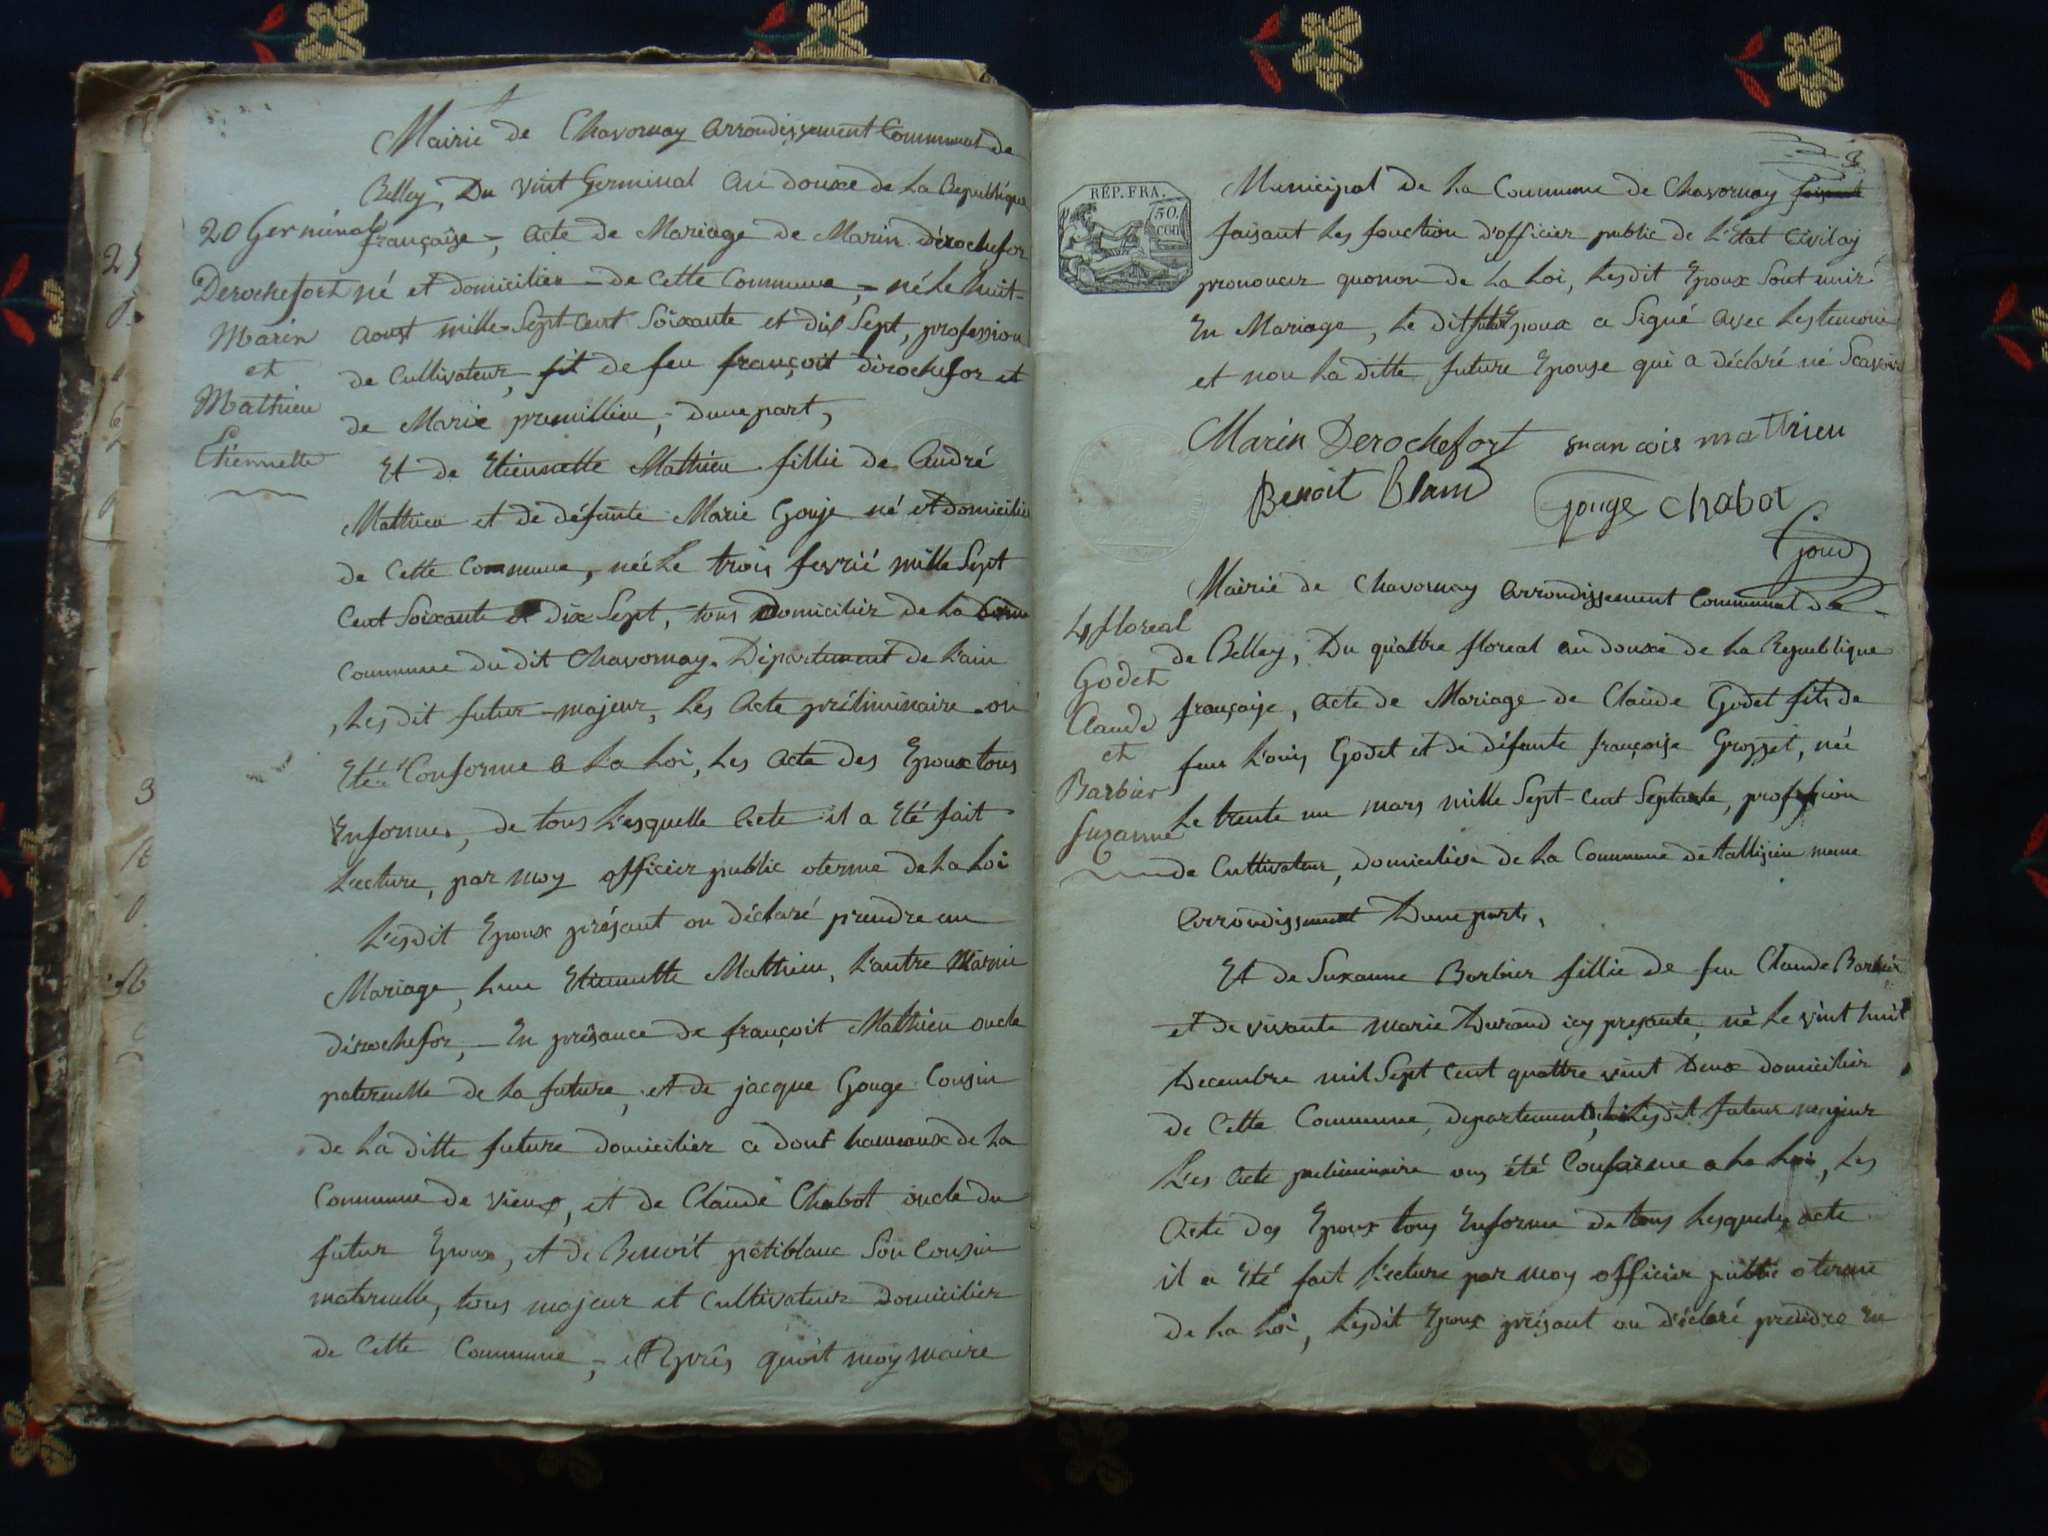 Mairie de Chavornay arrondissement Communal de
Belley, Du vint Germinal an douxe de La Republique
20 Germinal
française, acte de Mariage de Marin dérochefor
Derochefort
né et domicilier de Cette Commune, né Le huit
Marin
aoust mille Sept Cent Soixante et dix Sept, profession
et
de Cultivateur, fit de feu françoit dérochefor et
Mathieu
de Marie premillieu, dune part,
Etiennette
Et de Etiennette Mathieu fillie de André
Mathieu et de défunte Marie Gouje né et domicilié
de Cette Commune, née Le trois fevrié mille Sept
Cent Soixante et dix Sept, tous Domicilier de La
Commune du dit Chavornay. Département de L'ain
, Les dit futur majeur, Les Acte préliminaire on
Eté Conforme a La Loi, Les acte des Epoux tous
Enforme, de tous L'esquelle Acte il a Eté fait
Lecture, par moy officier public oterme de La Loi
L'esdit Epoux présant on déclaré prendre en
Mariage, Lune Etiennette Matthieu, L'autre Marin
dérochefor, En présance de françoit Mathieu oncle
paternelle de La future, et de jacque Gouge Cousin
de La ditte future domicilier a dont hameaux de La
Commune de vieux, et de Claude Chabot oncle du
futur Epoux, et de Benoit petiblanc Son Cousin
maternelle, tous majeur et Cultivateur domicilier
de Cette Commune, et Après quoit moy maire
RÉP. FRA.
50.
Municipal de La Commune de Chavornay
faisant Les fonction d'officier public de L'Etat Civil aÿ
prononcer quonon de La Loi, Lesdit Epoux Sont uniré
En Mariage, Le dit futur Epoux a Signé avec Lestemoin
et non La ditte future Epouse qui a déclaré né Scavoir
Marin Derochefort francois mathieu
Benoit Blanc Gouge Chabot
Mairie de Chavornay arrondissement Communal de
4 floreal
de Belley, Du quattre floreal an douxe de La Republique
Godet
française, acte de Mariage de Claude Godet fils de
Claude
et
feu L'ouis Godet et de défunte françoise Grosset, né
Barbier
Le trente un mars mille Sept-Cent Septante, profession
Suzanne
de Cultivateur, domicilier de La Commune de tallissieu meme
arrondissement Dune part,
Et de Suxanne Barbier fillie de feu Claude Barbier
et de vivante marie Durand icy presante, né Le vint huit
Decembre mil Sept Cent quattre vint Deux domicilier
de Cette Commune, departement, Lesdit futeur majeur
L'es Acte preliminaire ons été Conforme a La Loi, Les
Acte des Epoux tous Enforme de tous Lesquelle acte
il a Eté fait L'ecture par moy officier public oterme
de La Loi, Lesdit Epoux présant on déclaré prendre En